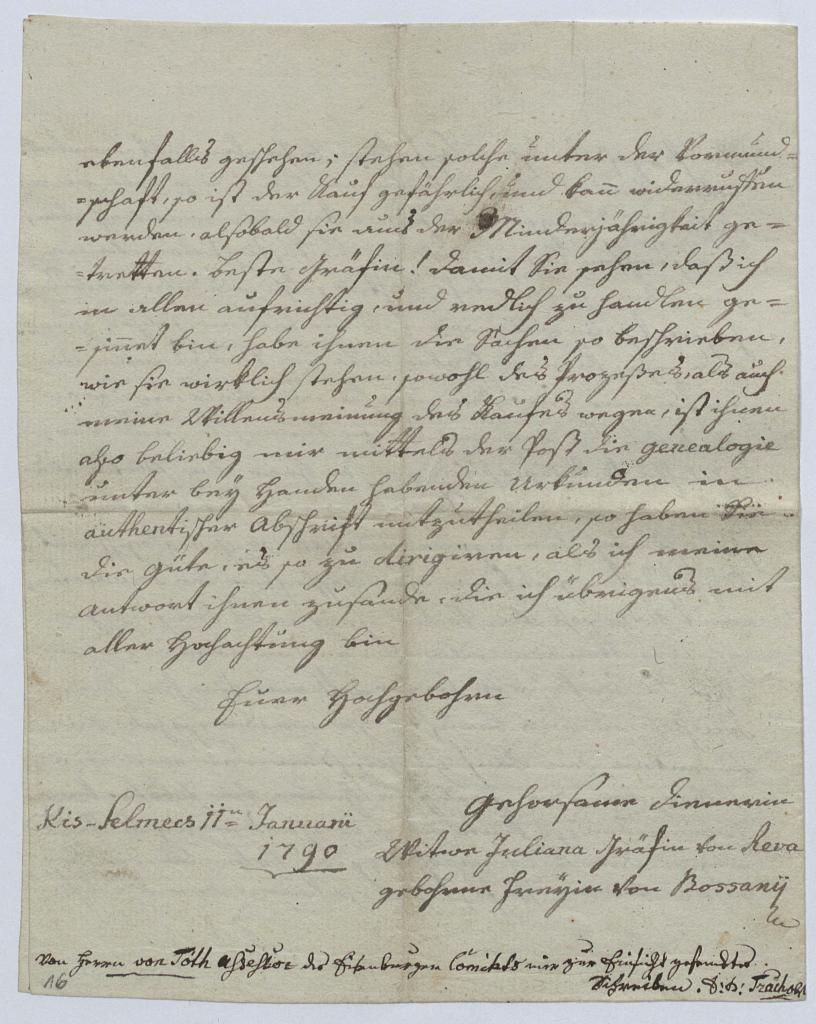 ebenfalls geschehen; stehen solche unter der Vormund=
=schaft, so ist der Kauf gefährlich, und kann widerruffen
werden, alsobald sie aus der Minderjährigkeit ge=
=tretten. Beste Gräfin! damit Sie sehen, daß ich
in allen aufrichtig, und redlich zu handlen ge=
=sinnet bin, habe ihnen die Sachen so beschrieben,
wie sie wirklich stehen, sowohl des Prozeßes, als auch
meine Willensmeinung des Kaufes wegen, ist ihnen
also beliebig mir mittels der Post die genealogie
unter bey Handen habenden Urkunden in
authentischer Abschrift mitzutheilen, so haben Sie
die Güte, es so zu dirigiren, als ich meine
Antwort ihnen zusände, die ich übrigens mit
aller Hochachtung bin
Euer Hochgebohrn
Gehorsame dienerin
Kis-Selmecs 11n Januarii
1790
Witwe Juliana Gräfin von Reva
gebohrne Freyin von Bossanÿ
von Herrn von Tóth Assessor des Eisenburger Comitats mir zur Einsicht gesendetes
Schreiben.
16